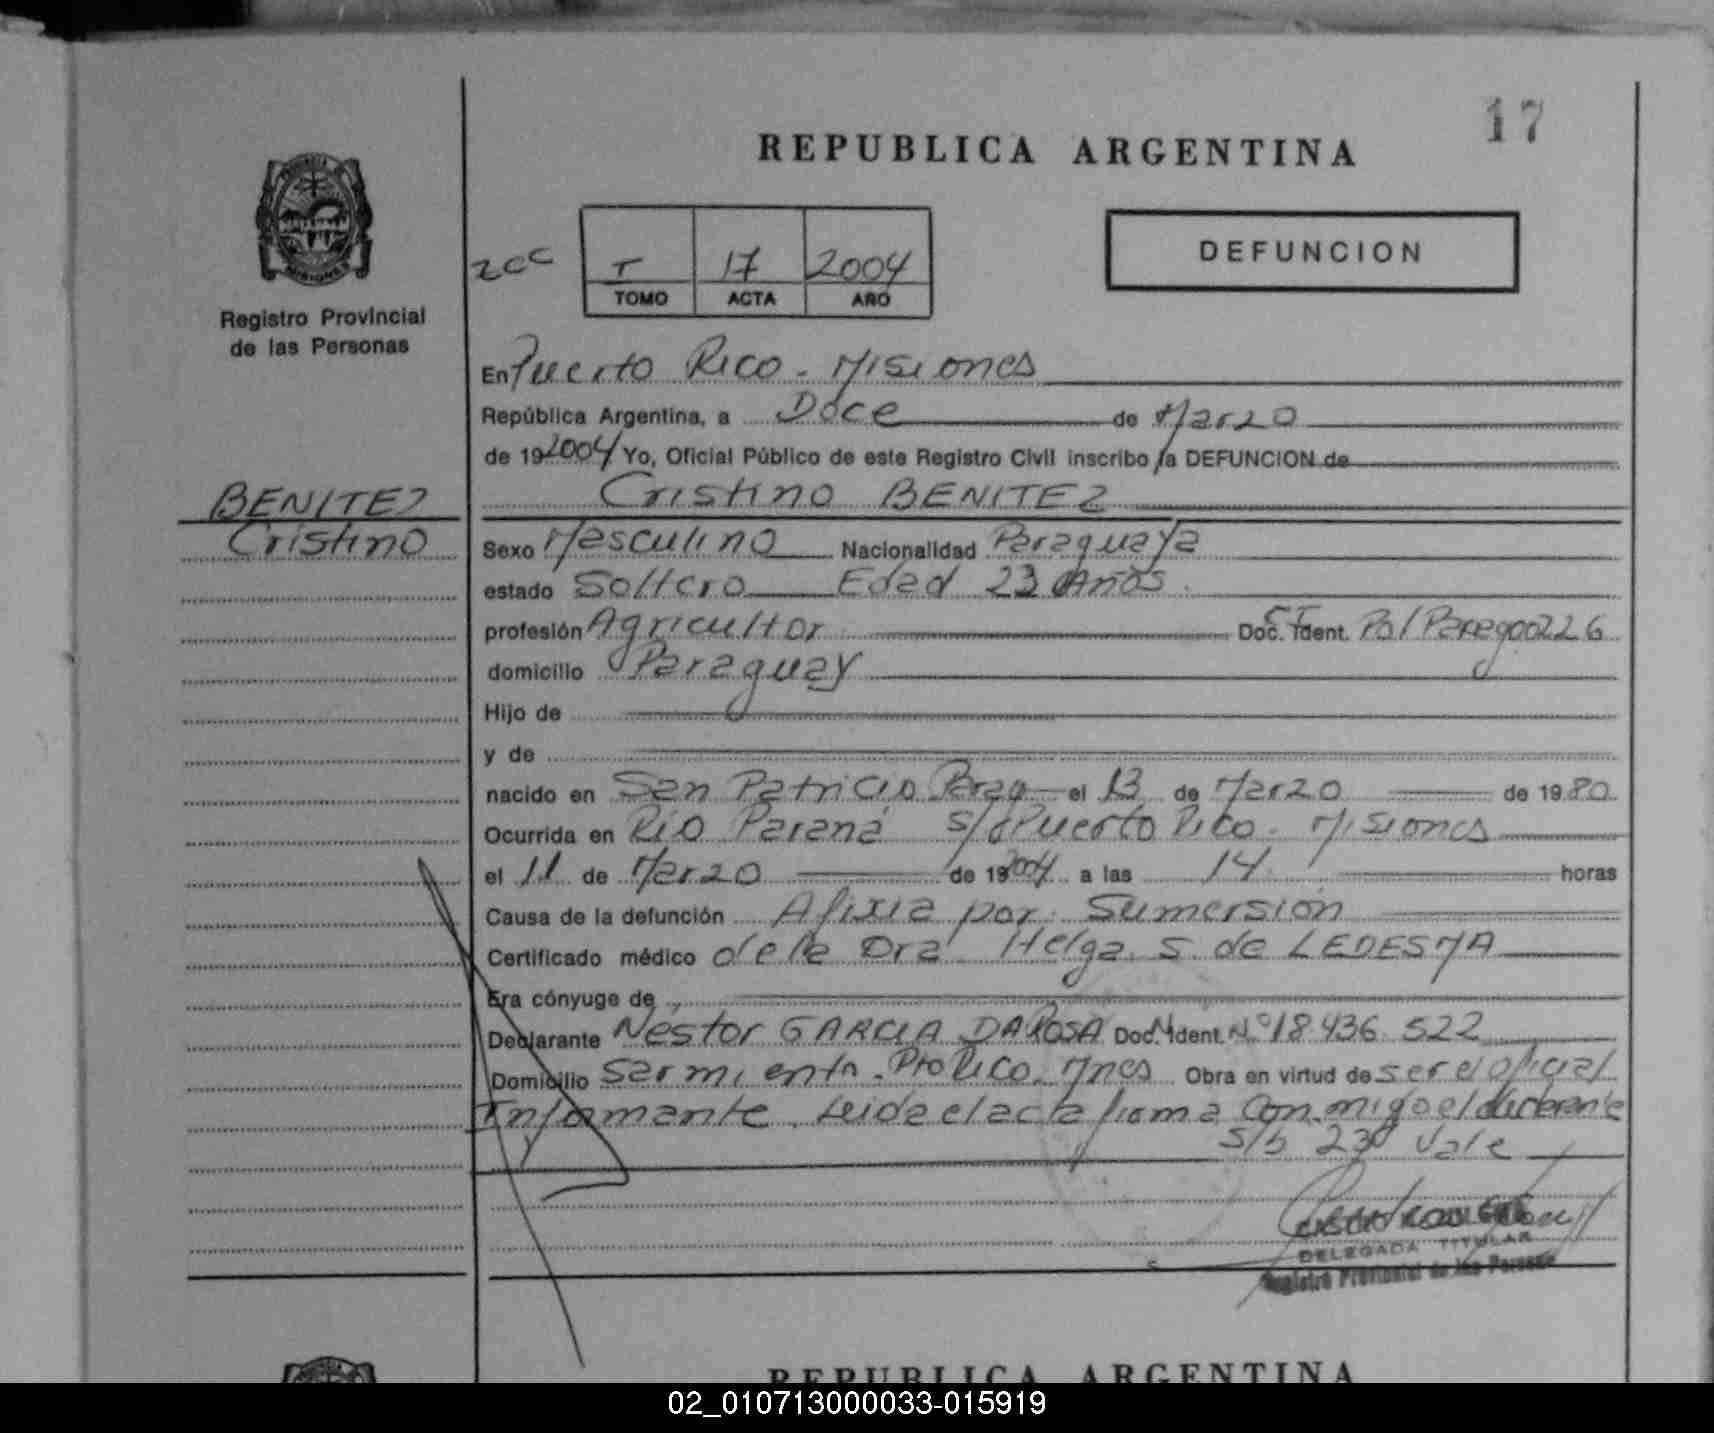 17
REPUBLICA ARGENTINA
DEFUNCION
T 17 2004
TOMO ACTA AÑO
PROVINCIA
MISIONES
Registro Provincial
de las Personas
En Puerto Rico - Misiones
República Argentina, a Doce de Marzo
de 19 2004 Yo, Oficial Público de este Registro Civil inscribo la DEFUNCION de
Cristino BENITEZ
BENITEZ
Cristino
Sexo Masculino Nacionalidad Paraguaya
estado Soltero Edad 23 Años.
profesión Agricultor Doc. Ident. Pol Parag 00226
domicilio Paraguay
Hijo de
y de
nacido en San Patricio Parag el 13 de Marzo de 1980
Ocurrida en Rio Paraná s/d Puerto Rico. Misiones
el 11 de Marzo de 19 2004 a las 14 horas
Causa de la defunción Afixia por Sumersión
Certificado médico de la Dra Helga S. de LEDESMA
Era cónyuge de
Declarante Néstor GARCIA DA ROSA Doc. Ident. Nº 18.436.522
Domicilio Sarmiento - Pto Rico. Mnes Obra en virtud de ser el oficial
Informante. Leida el acta firma conmigo el declarante
S/b 23 Vale
DELEGADA TITULAR
Registro Provincial de las Personas
REPUBLICA ARGENTINA
02_010713000033-015919